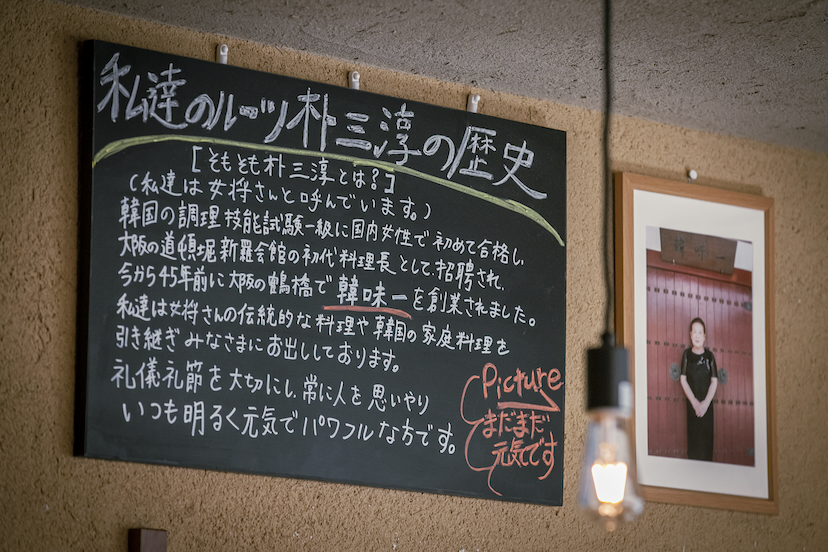 私達のルーツ朴三淳の歴史
[そもそも朴三淳とは?]
(私達は女将さんと呼んでいます。)
韓国の調理技能試験一級に国内女性で初めて合格し、
大阪の道頓堀新羅会館の初代料理長として、招聘され、
今から45年前に大阪の鶴橋で韓味一を創業されました。
私達は女将さんの伝統的な料理や韓国の家庭料理を
引き継ぎみなさまにお出ししております。
礼儀礼節を大切にし、常に人を思いやり
いつも明るく元気でパワフルな方です。
Picture
まだまだ
元気です